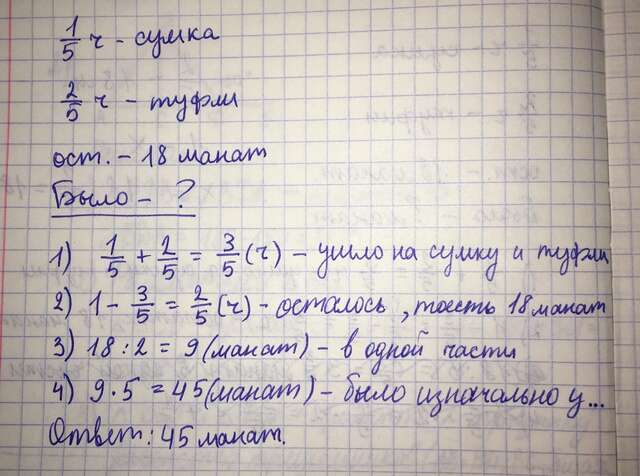 1/5 ч - сумка
2/5 ч - туфли
ост. - 18 манат
Было - ?
1) 1/5 + 2/5 = 3/5 (ч) - ушло на сумку и туфли
2) 1 - 3/5 = 2/5 (ч) - осталось, тоесть 18 манат
3) 18 : 2 = 9 (манат) - в одной части
4) 9 · 5 = 45 (манат) - было изначально у...
Ответ: 45 манат.